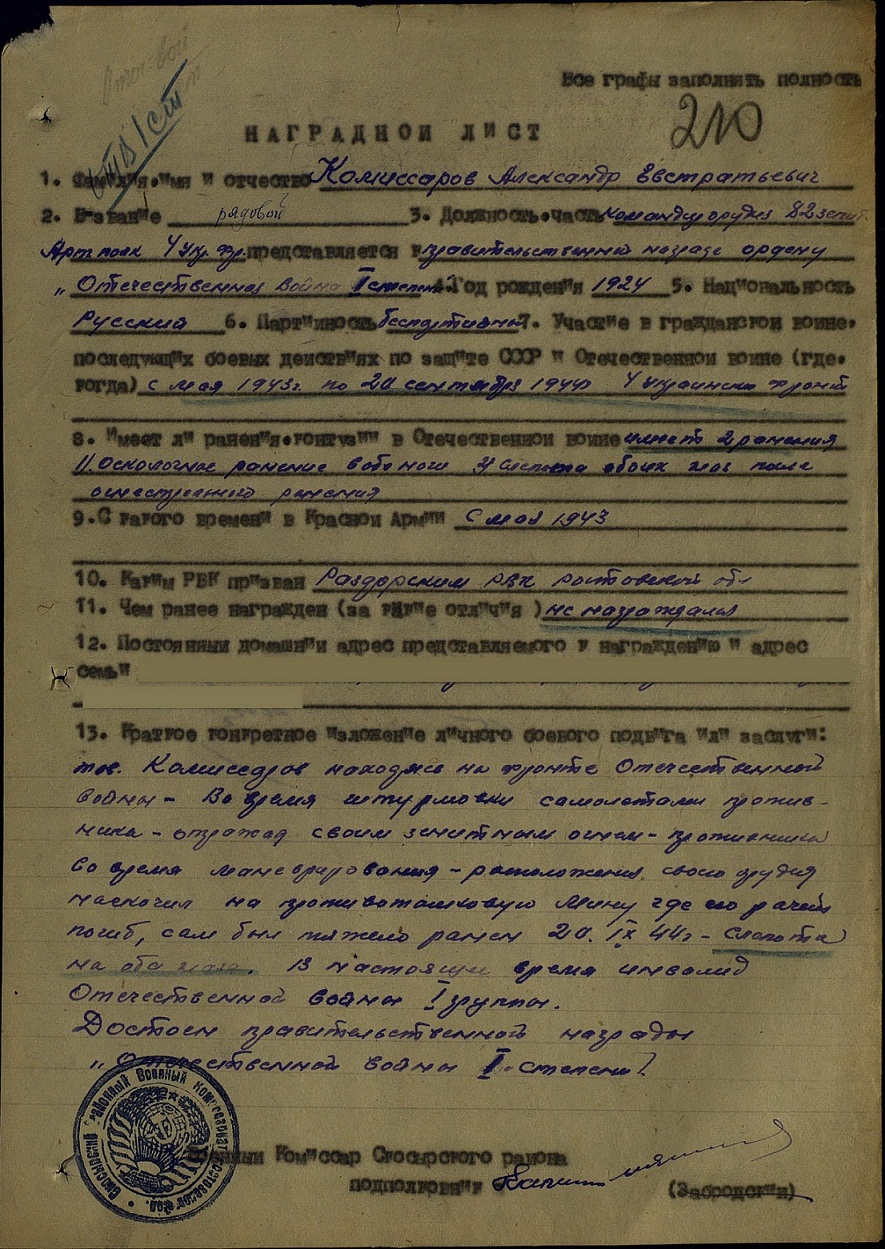 Отеч. вой
ОТВ 1 ст
Все графы заполнять полность
210
НАГРАДНОЙ ЛИСТ
1. Фамилия, имя и отчество Комиссаров Александр Евстратьевич
2. В-звание рядовой 3. Должность, часть командир орудия 82 зенит.
Арт полк 4 Укр. Фр. представляется к правительственной награде ордену
„Отечественная война II степени" 4. Год рождения 1924 5. Национальность
Русский 6. Партийность беспартийный 7. Участие в гражданской войне,
последующих боевых действиях по защите СССР и Отечественной войне (где,
когда) с мая 1943г. по 20 сентября 1944г 4 Украински фронт
8. Имеет ли ранения, контузии в Отечественной войне имеет 2 ранения
1). Осколочное ранение в обе ноги 2) слепота обоих глаз после
огнестрельного ранения
9. С какого времени в Красной Армии с мая 1943
10. Каким РВК призван Раздорским РВК Ростовской обл
11. Чем ранее награжден (за какие отличия) не награждался
12. Постоянный домашний адрес представляемого к награждению и адрес
семьи
13. Краткое конкретное изложение личного боевого подвига или заслуги:
тов. Комиссаров находясь на фронте Отечественной
войны - Во время штурмовки самолетами против-
ника - отражая своим зенитным огнем - противника
во время маневрирования - расположения своего орудия
наскочил на противотанковую мину где его расчет
погиб, сам был тяжело ранен 20.IX 44г - слепота
на оба глаза. В настоящи время инвалид
Отечественной войны I группы.
Достоен правительственной награды
„Отечественной войны II степени".
Военный Комиссар Скосырского района
подполковник (Забродский)
Районный Военный Комиссариат